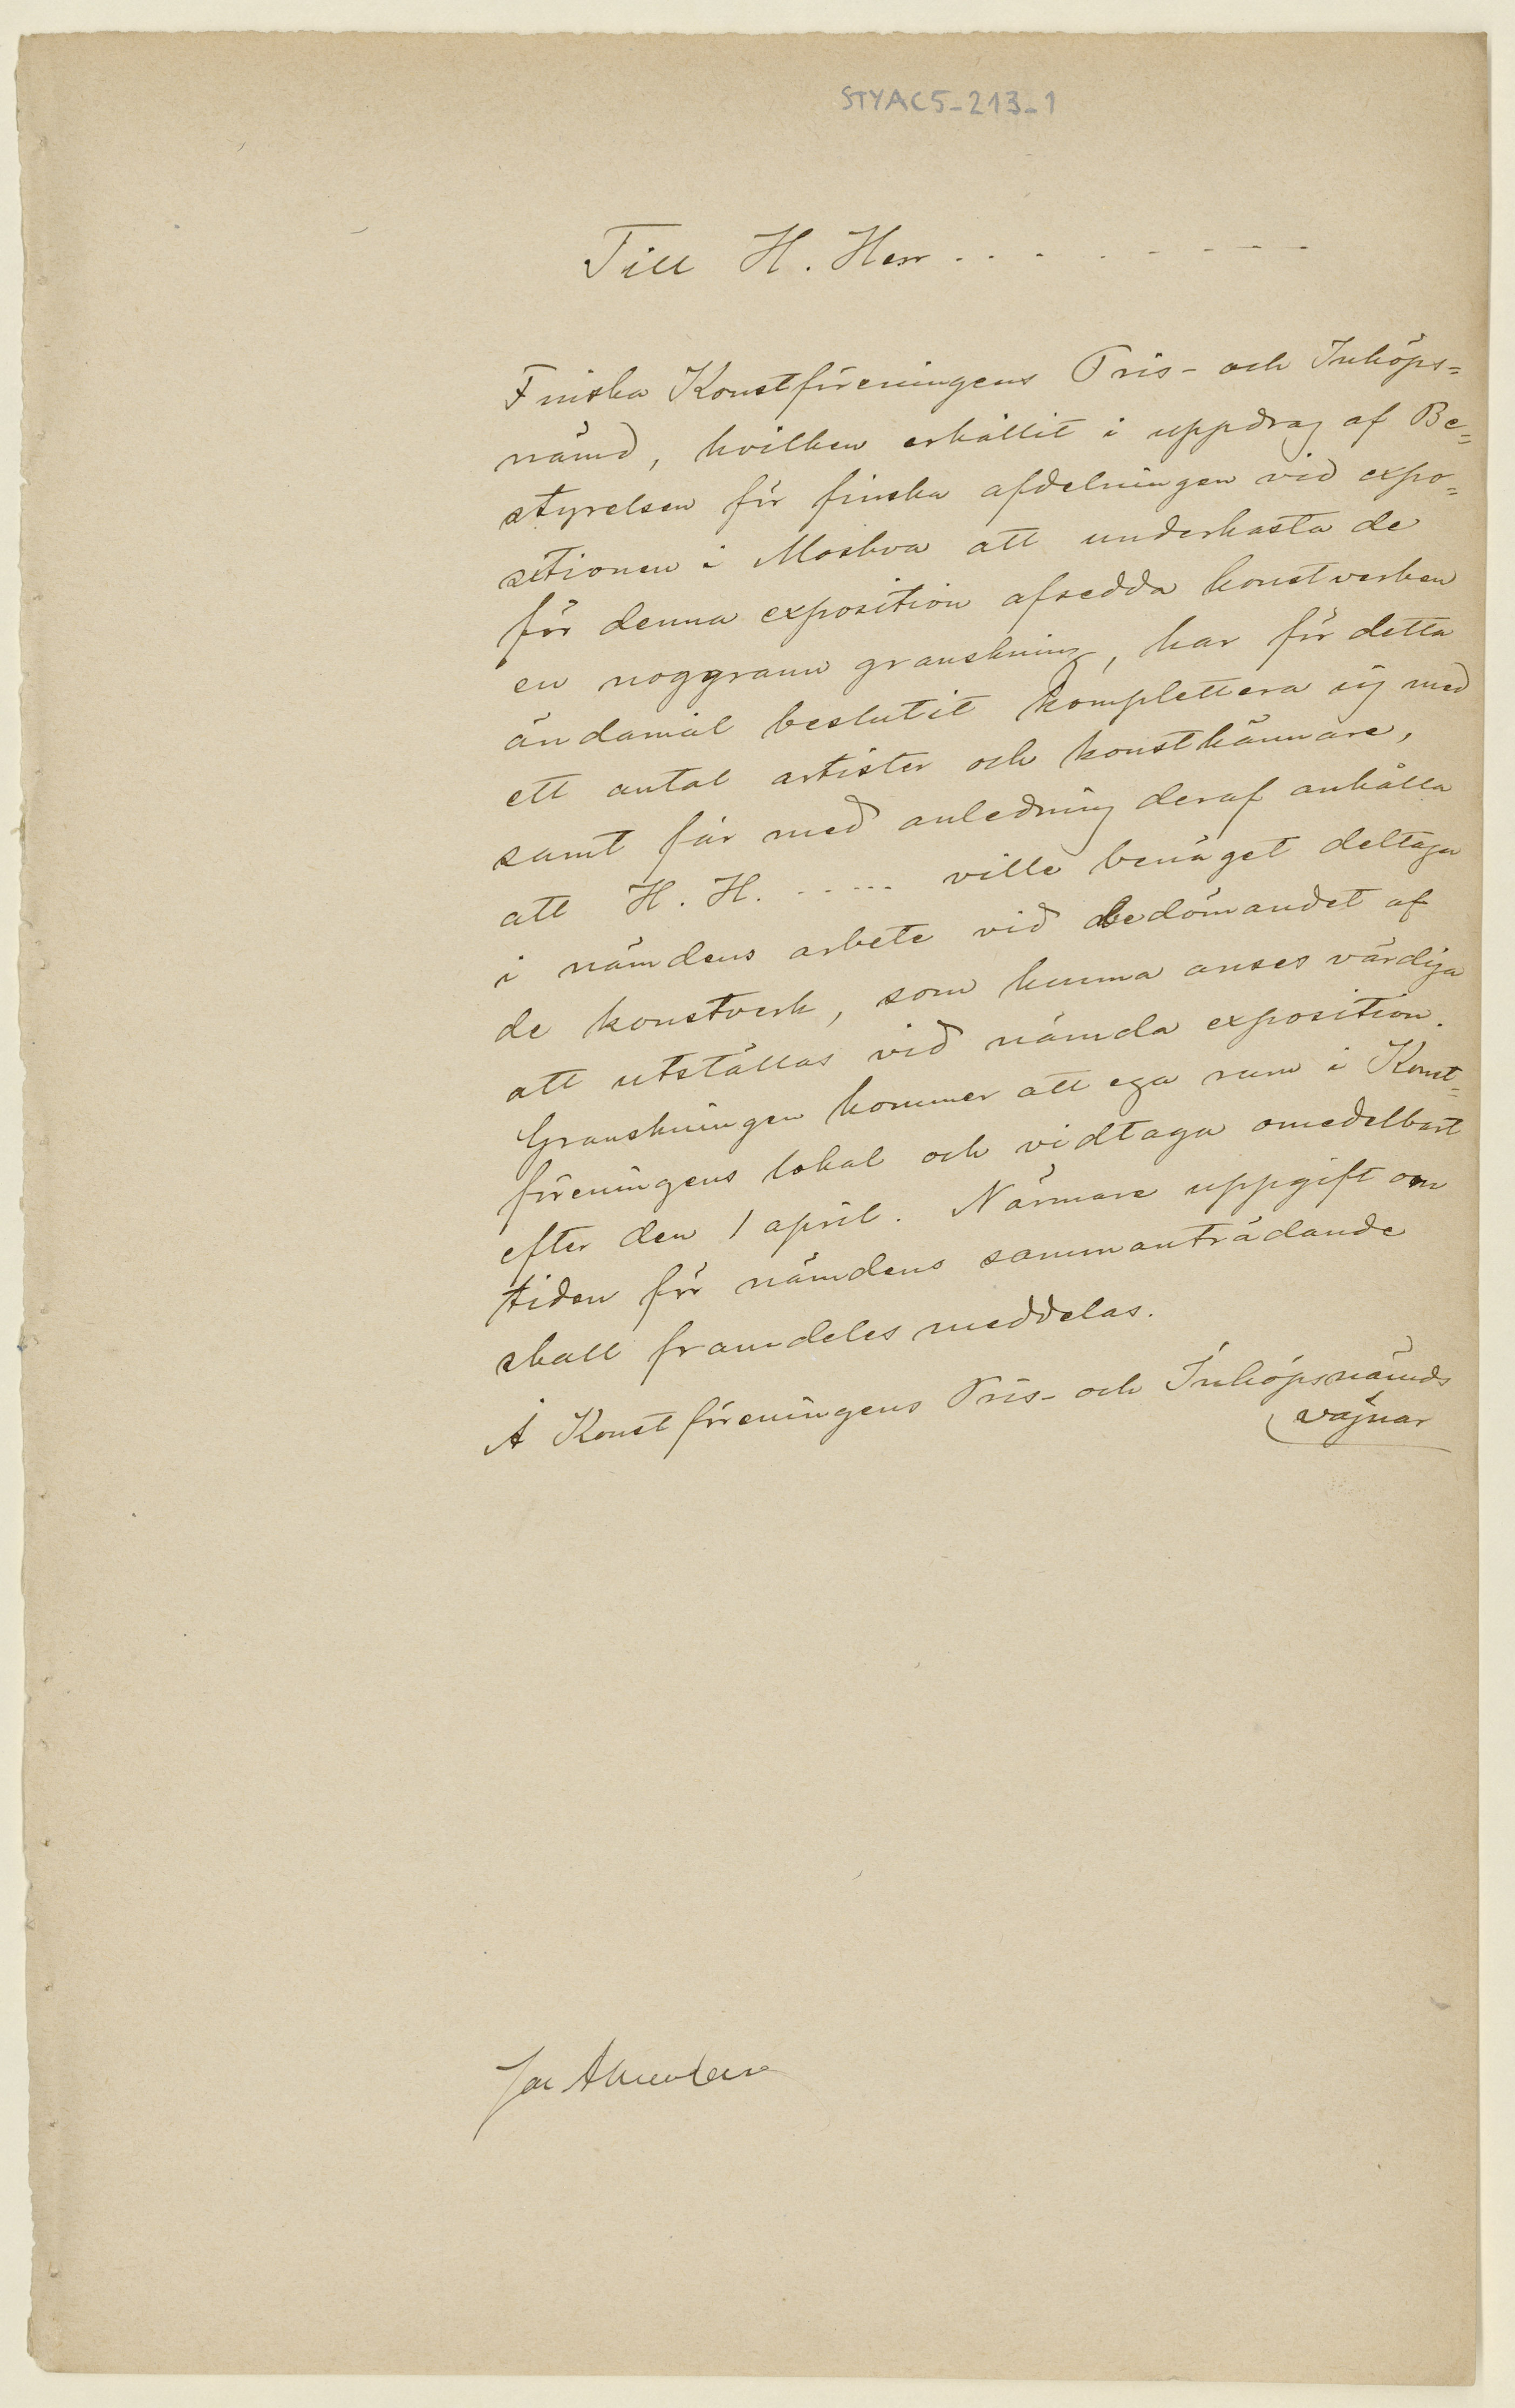 STYAC5-213-1
Till H. Herr . . . . - - -
Finska Konstföreningens Pris- och Inköps=
nämd, hvilken erhållit i uppdrag af Be=
styrelsen för finska afdelningen vid expo=
sitionen i Moskva att underkasta de
för denna exposition afsedda konstverken
en noggrann granskning, har för detta
ändamål beslutit komplettera sig med
ett antal artister och konstkännare,
samt får med anledning deraf anhålla
att H. H. ..... ville benäget deltaga
i nämdens arbete vid bedömandet af
de konstverk, som kunna anses värdiga
att utställas vid nämda exposition.
Granskningen kommer att ega rum i Konst=
föreningens lokal och vidtaga omedelbart
efter den 1 april. Närmare uppgift om
tiden för nämdens sammanträdande
skall framdeles meddelas.
Å Konstföreningens Pris- och Inköpsnämds
vägnar